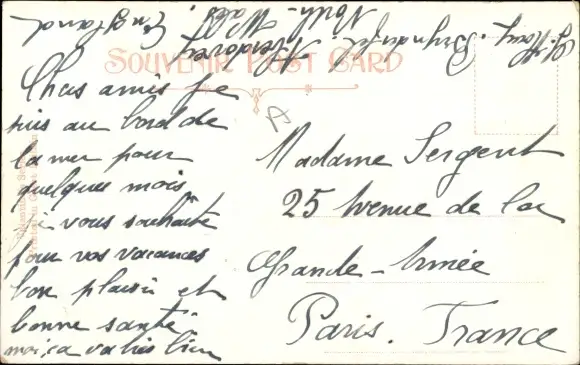 SOUVENIR POST CARD
Chers amis je
suis au bord de
la mer pour
quelques mois
je vous souhaite
pour vos vacances
bon plaisir et
bonne santé
moi, ca va très bien
Madame Sergent
25 Avenue de la
Grande-Armée
Paris. France
North-
Wales.
England